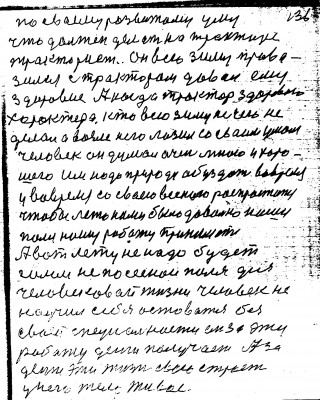 по своему развитому уму 136
что должен делать на тракторе
тракторист. Он всю зиму прово-
зился с трактором давал ему
здоровие А когда трактор здорового
характера, кто всю зиму ничего не
делал а возле него лазил со своим умом
человек он думал очень много и хоро-
шего Им надо природу обуздать вовремя
и вовремя со своею весною распрастоту
чтобы лето нами было довольно нашу
поля нашу работу принимать
А вот лету не надо будет
голым не посеяной поля для
человеческой жизни человек не
научил себя оставатся без
своей специалности он за эту
работу деньги получает А за
деньги эти
у него тело живое.